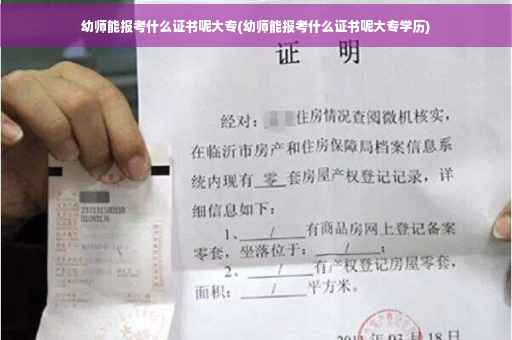 幼师能报考什么证书呢大专(幼师能报考什么证书呢大专学历)
证 明
经对: 住房情况查阅微机核实,
在临沂市房产和住房保障局档案信息系
统内现有 零 套房屋产权登记记录,详
细信息如下:
1、 / 有商品房网上登记备案
零套,坐落位于: / ;
2、 / 有产权登记房屋零套,
面积: / 平方米。
03月18日